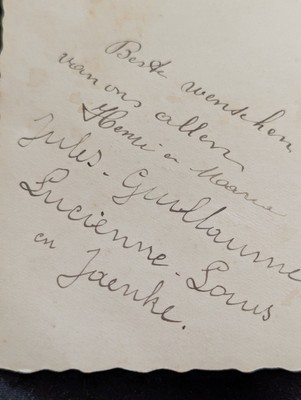 Beste wenschen,
van ons allen
Henri en Maarie
Jules - Guillaume
Lucienne - Louis
en Jaenke.